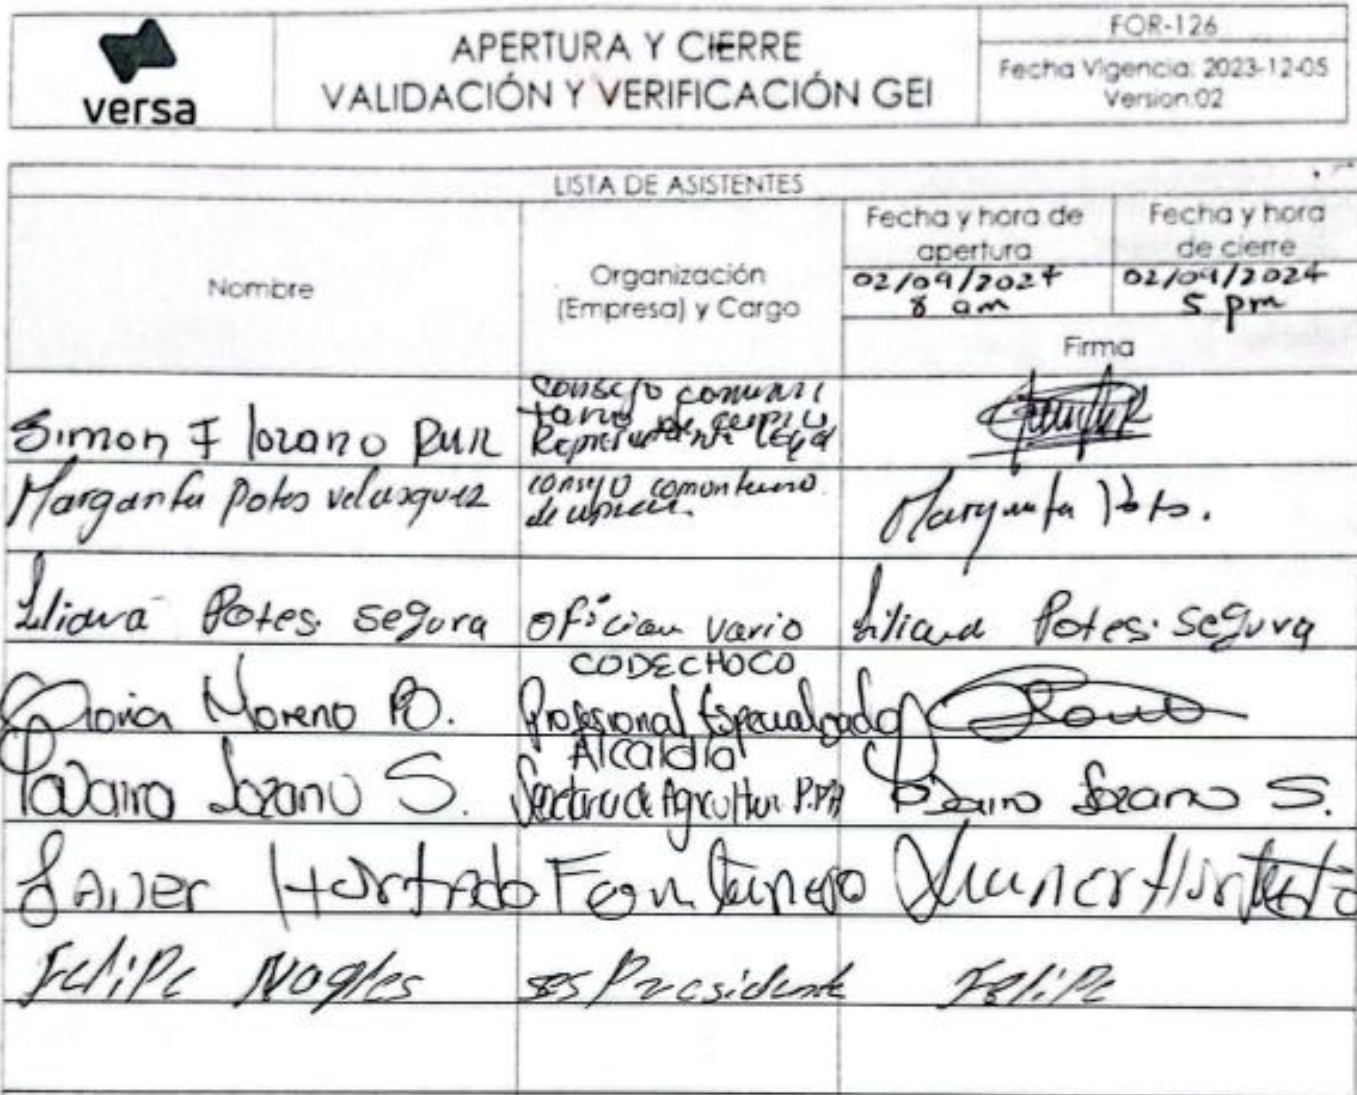 versa
APERTURA Y CIERRE
VALIDACIÓN Y VERIFICACIÓN GEI
FOR-126
Fecha Vigencia: 2023-12-05
Version:02
LISTA DE ASISTENTES
Nombre
Organización
(Empresa) y Cargo
Fecha y hora de
apertura
02/09/2024
8 am
Fecha y hora
de cierre
02/09/2024
5 pm
Firma
Simon F lozano Ruiz
Consejo comuni
tario de
Representante Legal
Margarita Potes velasquez
consejo comunitario
de
Margarita Potes.
Liliana Potes segura
oficiau vario
Liliana Potes segura
Gloria Moreno PO.
CODECHOCO
Profesional Especializado
Lozano S.
Alcaldía
Secretaria de Agricultura
Lozano S.
Hurtado
Felipe Nagles
Presidente
Felipe